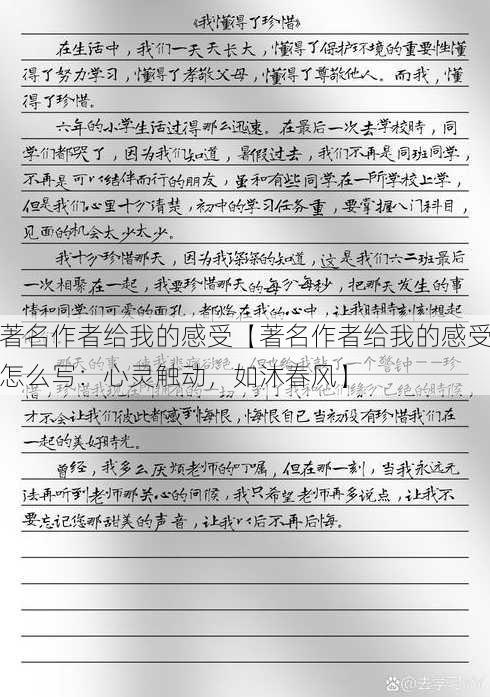 《我懂得了珍惜》
在生活中，我们一天天长大，懂得了保护环境的重要性懂
得了努力学习，懂得了孝敬父母，懂得了尊敬他人。而我，懂
得了珍惜。
六年的小学生活过得那么迅速。在最后一次去学校时，同
学们都哭了，因为我们知道，暑假过去，我们不再是同班同学，
不再是可以结伴而行的朋友，虽和有些同学在一所学校上学，
但是我们心里十分清楚，初中的学习任务重，要掌握八门科目，
见面的机会太少太少。
我十分珍惜那天，因为我深深的知道，这是我们六二班最后
一次相聚在一起，我要珍惜那天的每分每秒，把那天发生的事
情和同学们可爱的面孔，都烙在我的心中，让我时时刻刻想起
著名作者给我的感受【著名作者给我的感受
怎么写：心灵触动，如沐春风】
才不会让我们彼此都感到悔恨，悔恨自己当初没有珍惜我们在
一起的美好时光。
曾经，我多么厌烦老师的叮嘱，但在那一刻，当我永远无
法再听到老师那关心的问候，我只希望老师再多说点，让我不
要忘记您那甜美的声音，让我以后不再后悔。